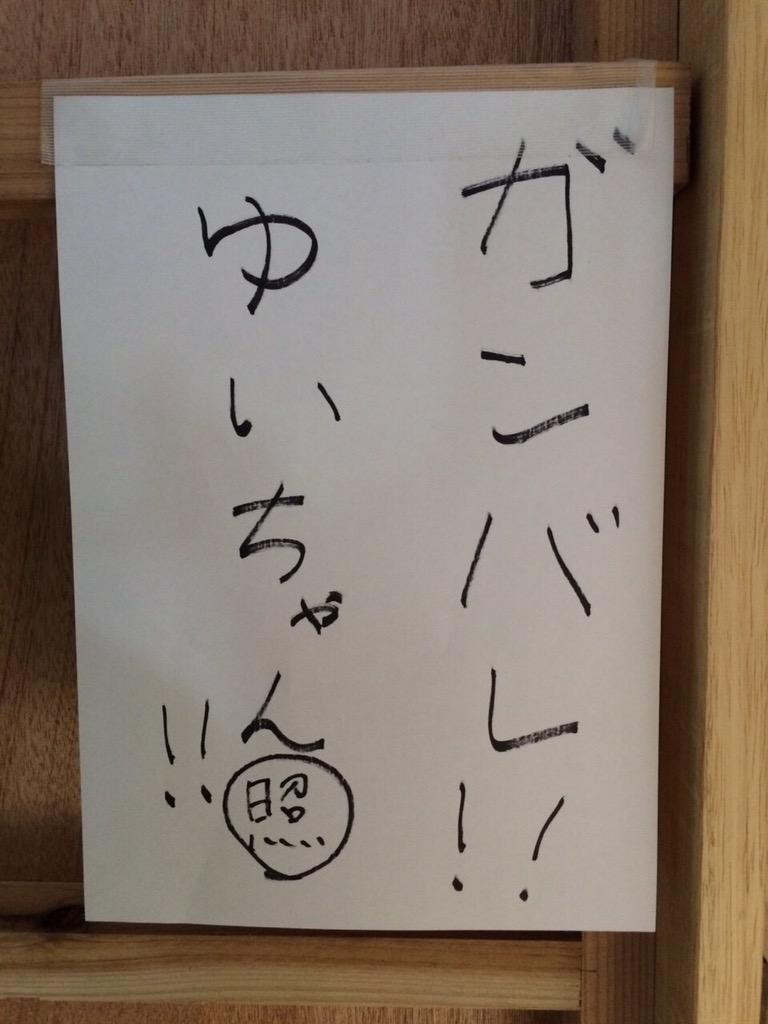 ガンバレ!!
ゆいちゃん照!!